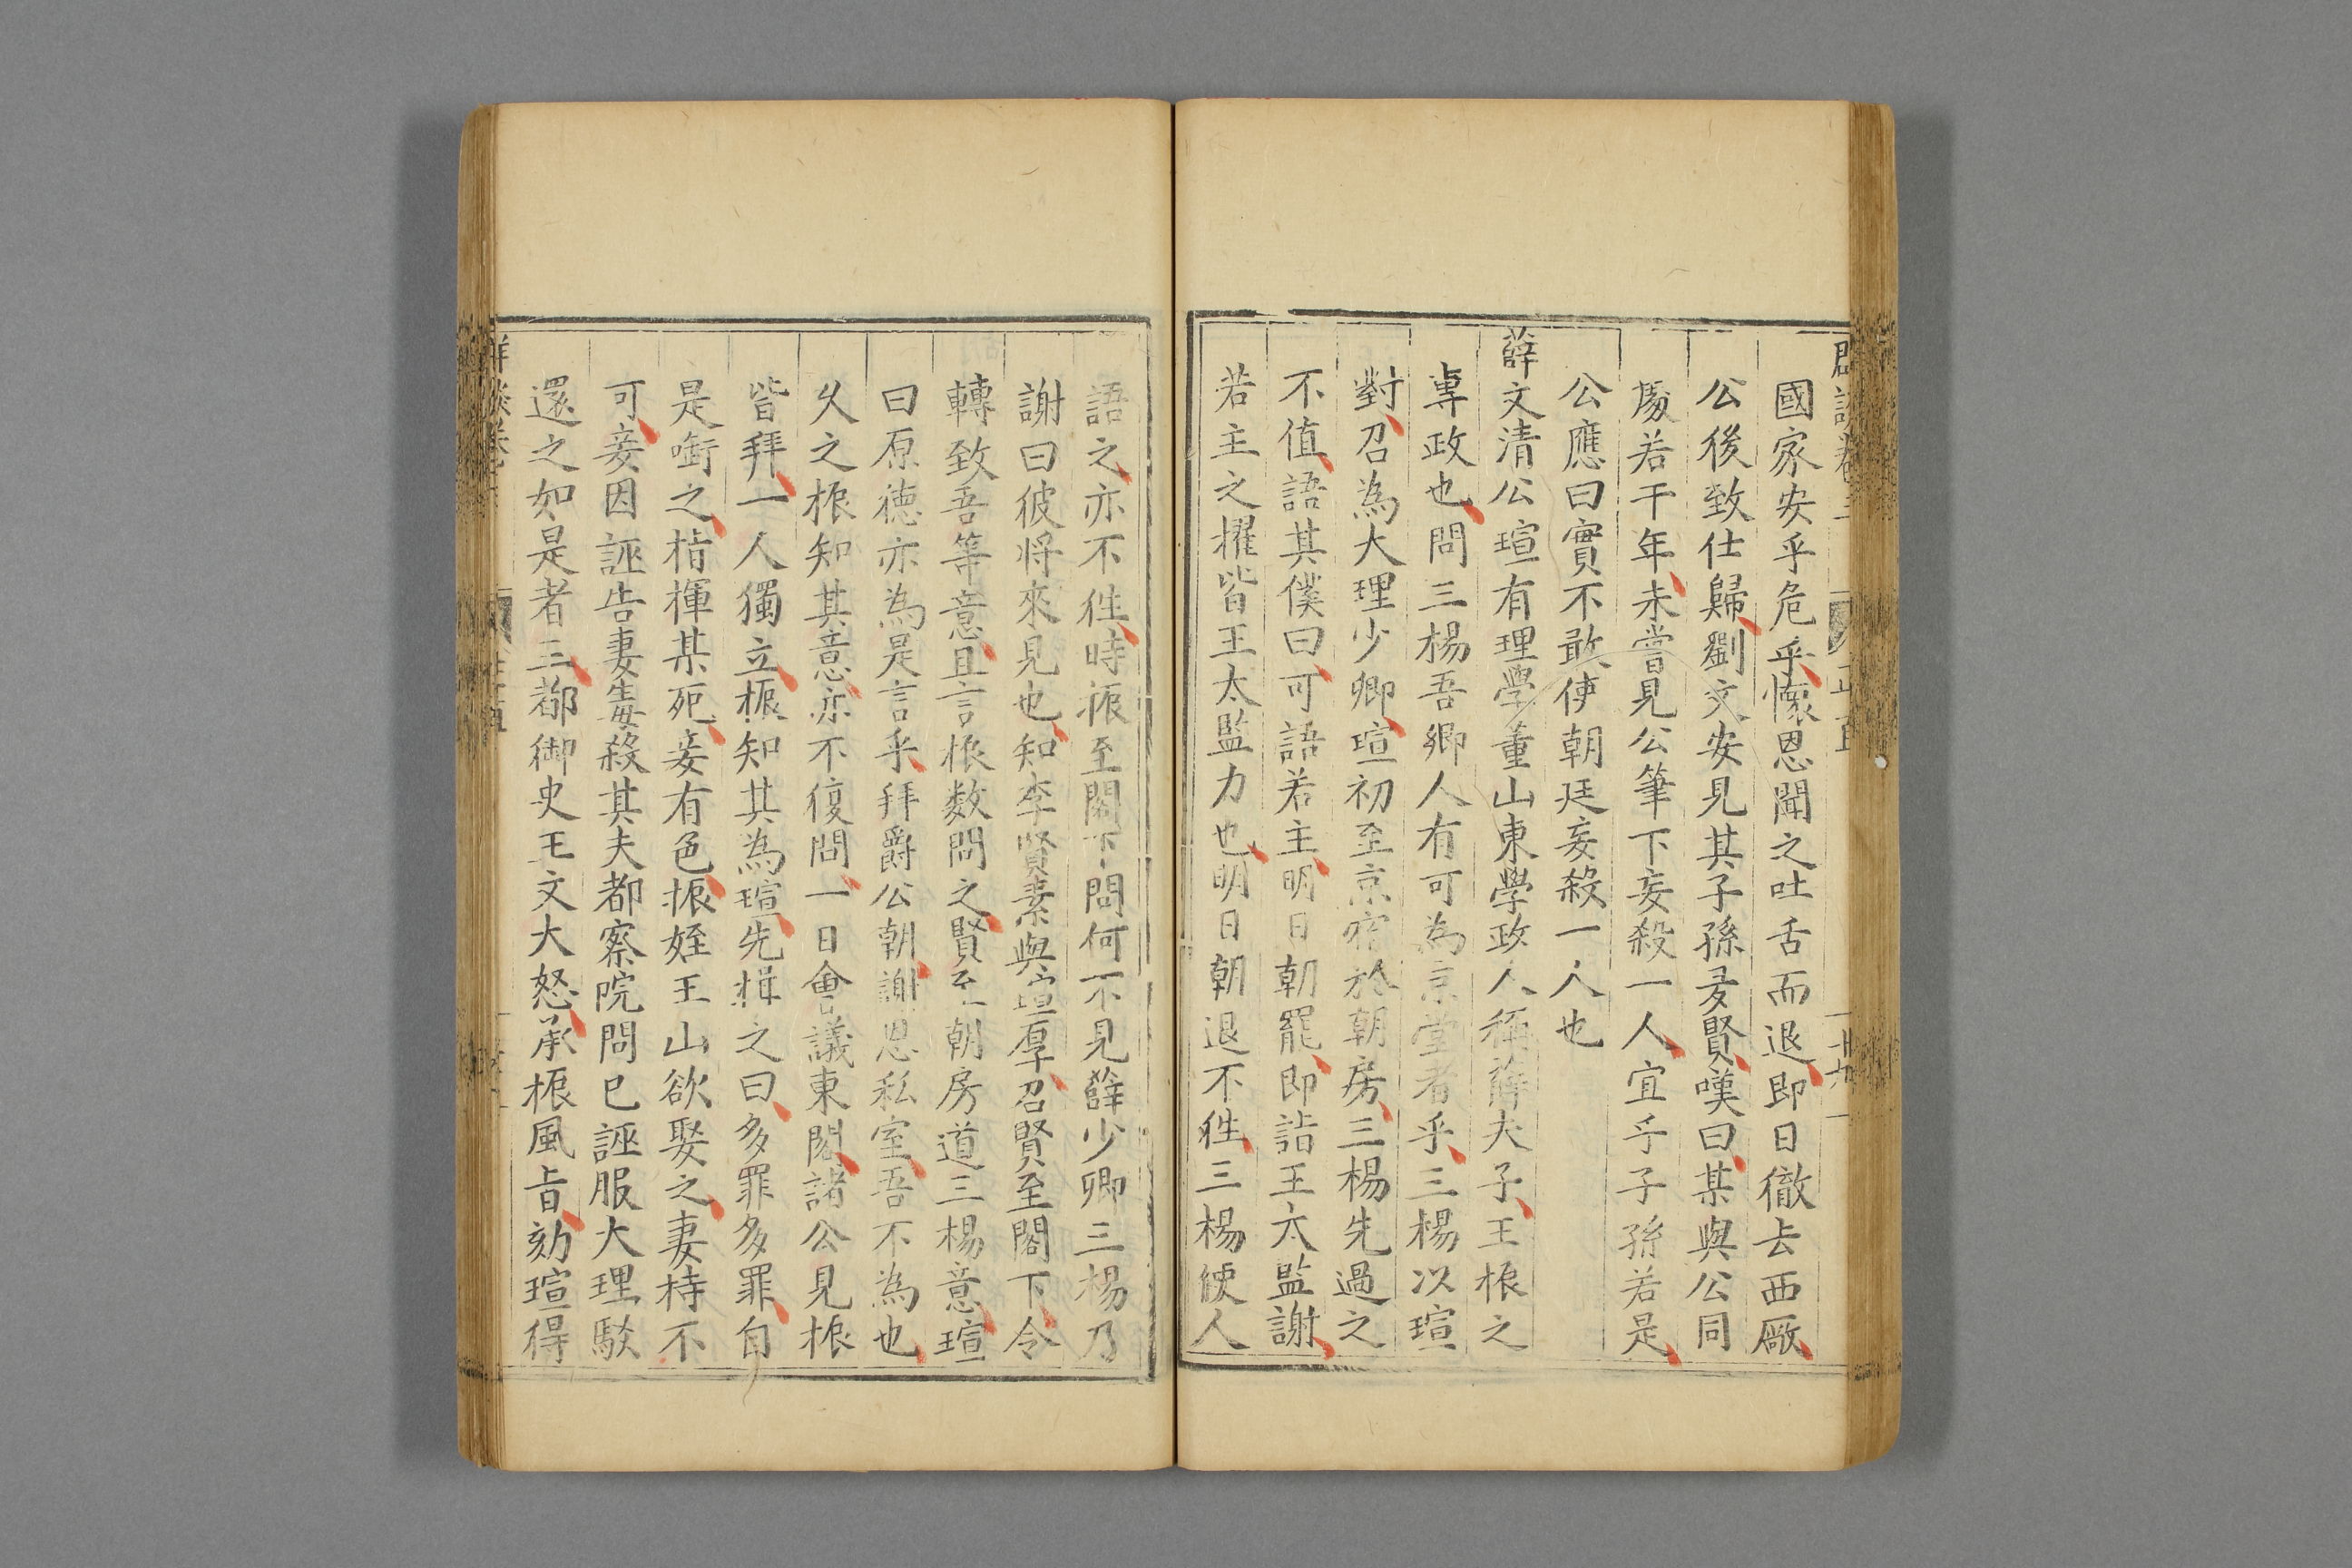 國家安乎危乎懷恩聞之吐舌而退即日徹去西厰
公後致仕歸劉文安見其子孫多賢嘆曰某與公同
䖏若干年未嘗見公筆下妄殺一人宜乎子孫若是
公應曰實不敢使朝廷妄殺一人也
薛文清公瑄有理學董山東學政人稱薛夫子王振之
專政也問三楊吾鄉人有可為京堂者乎三楊以瑄
對召為大理少卿瑄初至京宿於朝房三楊先過之
不值語其僕曰可語若主明日朝罷即詣王太監謝
若主之擢皆王太監力也明日朝退不徃三楊使人
語之亦不徃時振至閣下問何不見薛少卿三楊乃
謝曰彼将來見也知李賢素與瑄厚召賢至閣下令
轉致吾等意且言振數問之賢至朝房道三楊意瑄
曰原徳亦為是言乎拜爵公朝謝恩私室吾不為也
乆之振知其意亦不復問一日會議東閣諸公見振
皆拜一人獨立振知其為瑄先揖之曰多罪多罪自
是銜之指揮某死妾有色振姪王山欲娶之妻持不
可妾因誣告妻毒殺其夫都察院問已誣服大理駁
還之如是者三都御史王文大怒承振風旨劾瑄得